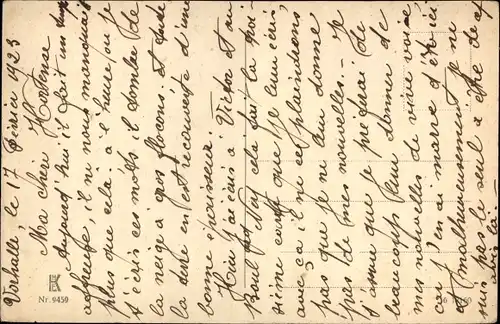 Verhalle, le 17 Février 1923
Ma chère Hortense
Aujourd'hui, il fait un temps
affreux, il ne nous manquait
plus que cela à l'heure où je
t'écris ces mots il tombe de
la neige à gros flocons, et toute
la terre en est recouverte d'une
bonne épaisseur.
Hier j'ai écris à Victor et au
Boul. Noel cela fait la troi-
sième coup que je leur écris,
avec ça il ne se plaindrons
pas que je ne leur donne
pas de mes nouvelles. - Je
t'assure que je préférai de
beaucoup leur donner de
mes nouvelles de vive voix,
car j'en ai marre d'être ici
Malheureusement je ne
suis pas le seul à être de
Nr. 9459